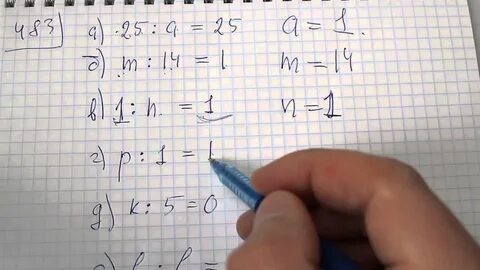 483) а) 25 : a = 25 a = 1.
б) m : 14 = 1 m = 14
в) 1 : n = 1 n = 1
г) p : 1 = 1
д) k : 5 = 0